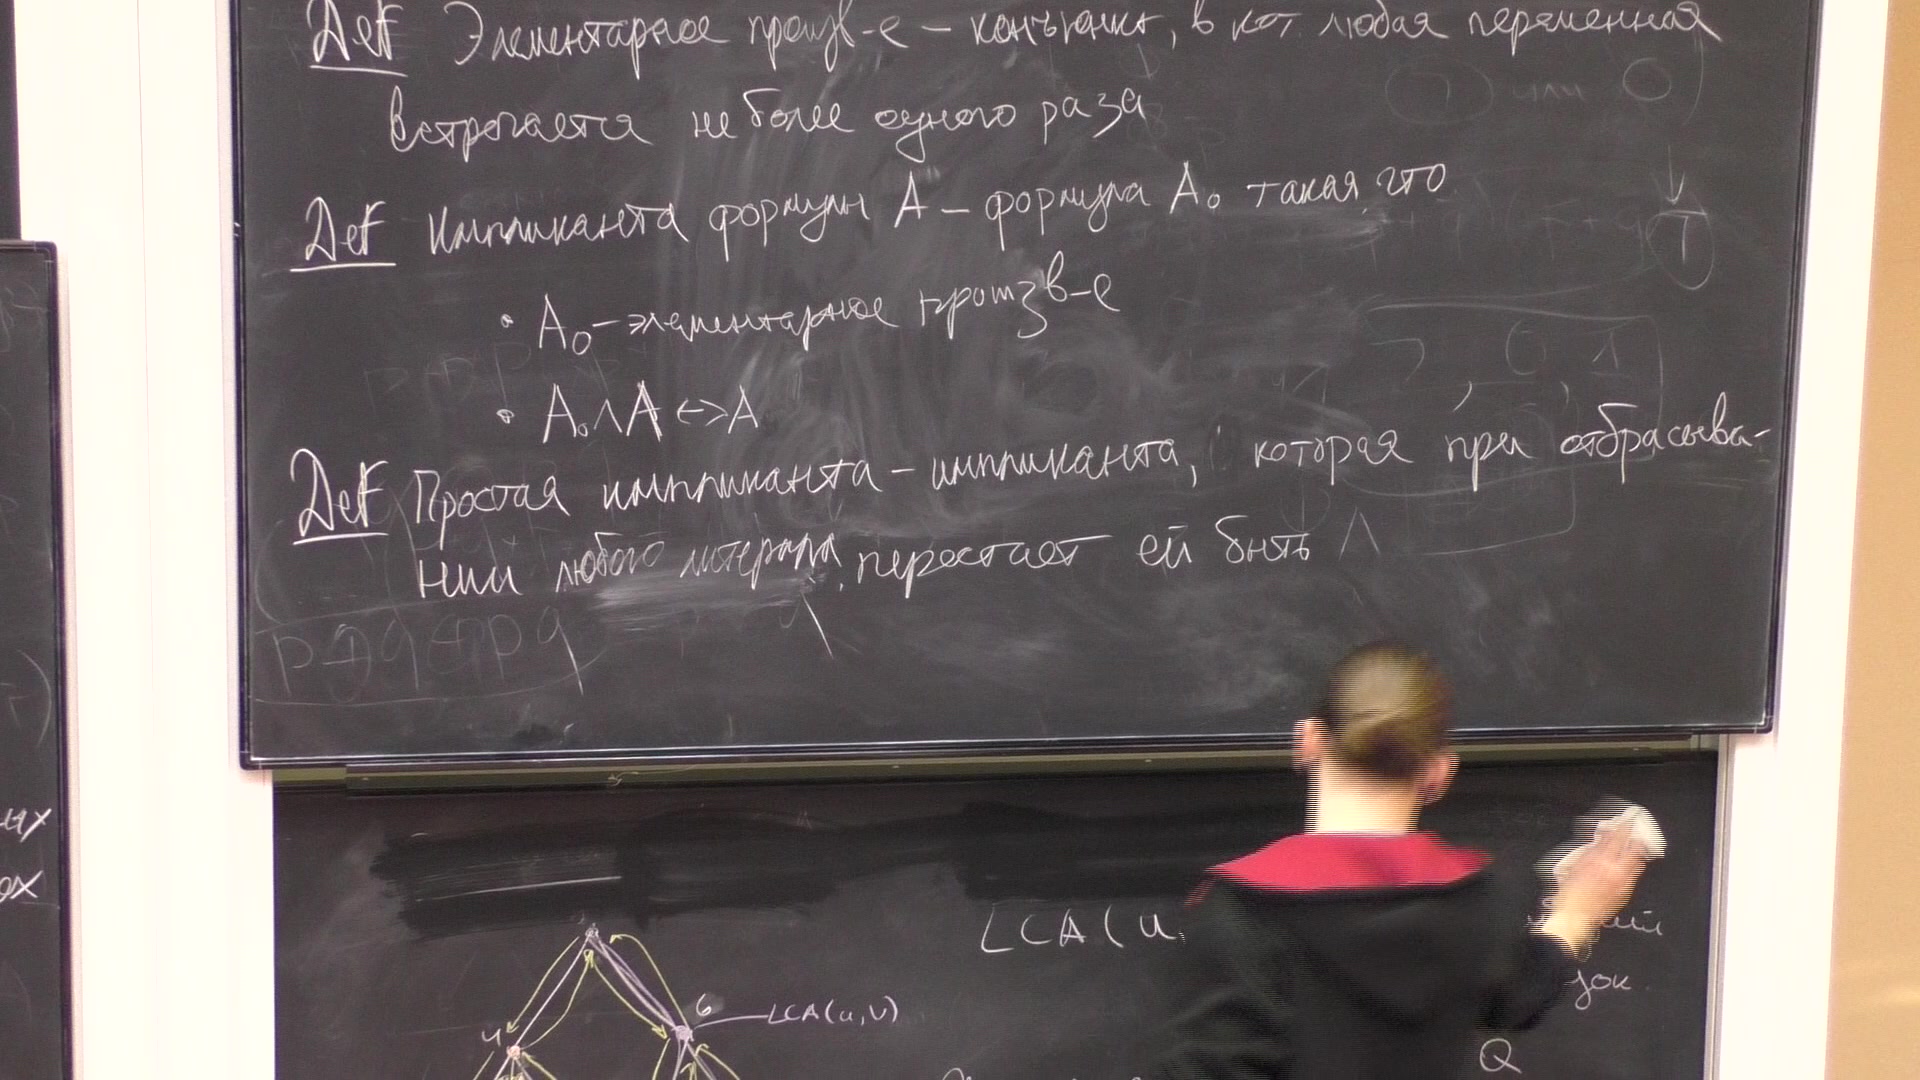 Def Элементарное произв-е – конъюнкт, в кот. любая переменная
встречается не более одного раза
Def Импликанта формулы A – формула A₀ такая, что
• A₀ – элементарное произв-е
• A₀∧A <-> A
Def Простая импликанта – импликанта, которая при отбрасыва-
нии любого литерала, перестает ей быть
их
ах
LCA(u,
док.
6
LCA(u,v)
4
Q